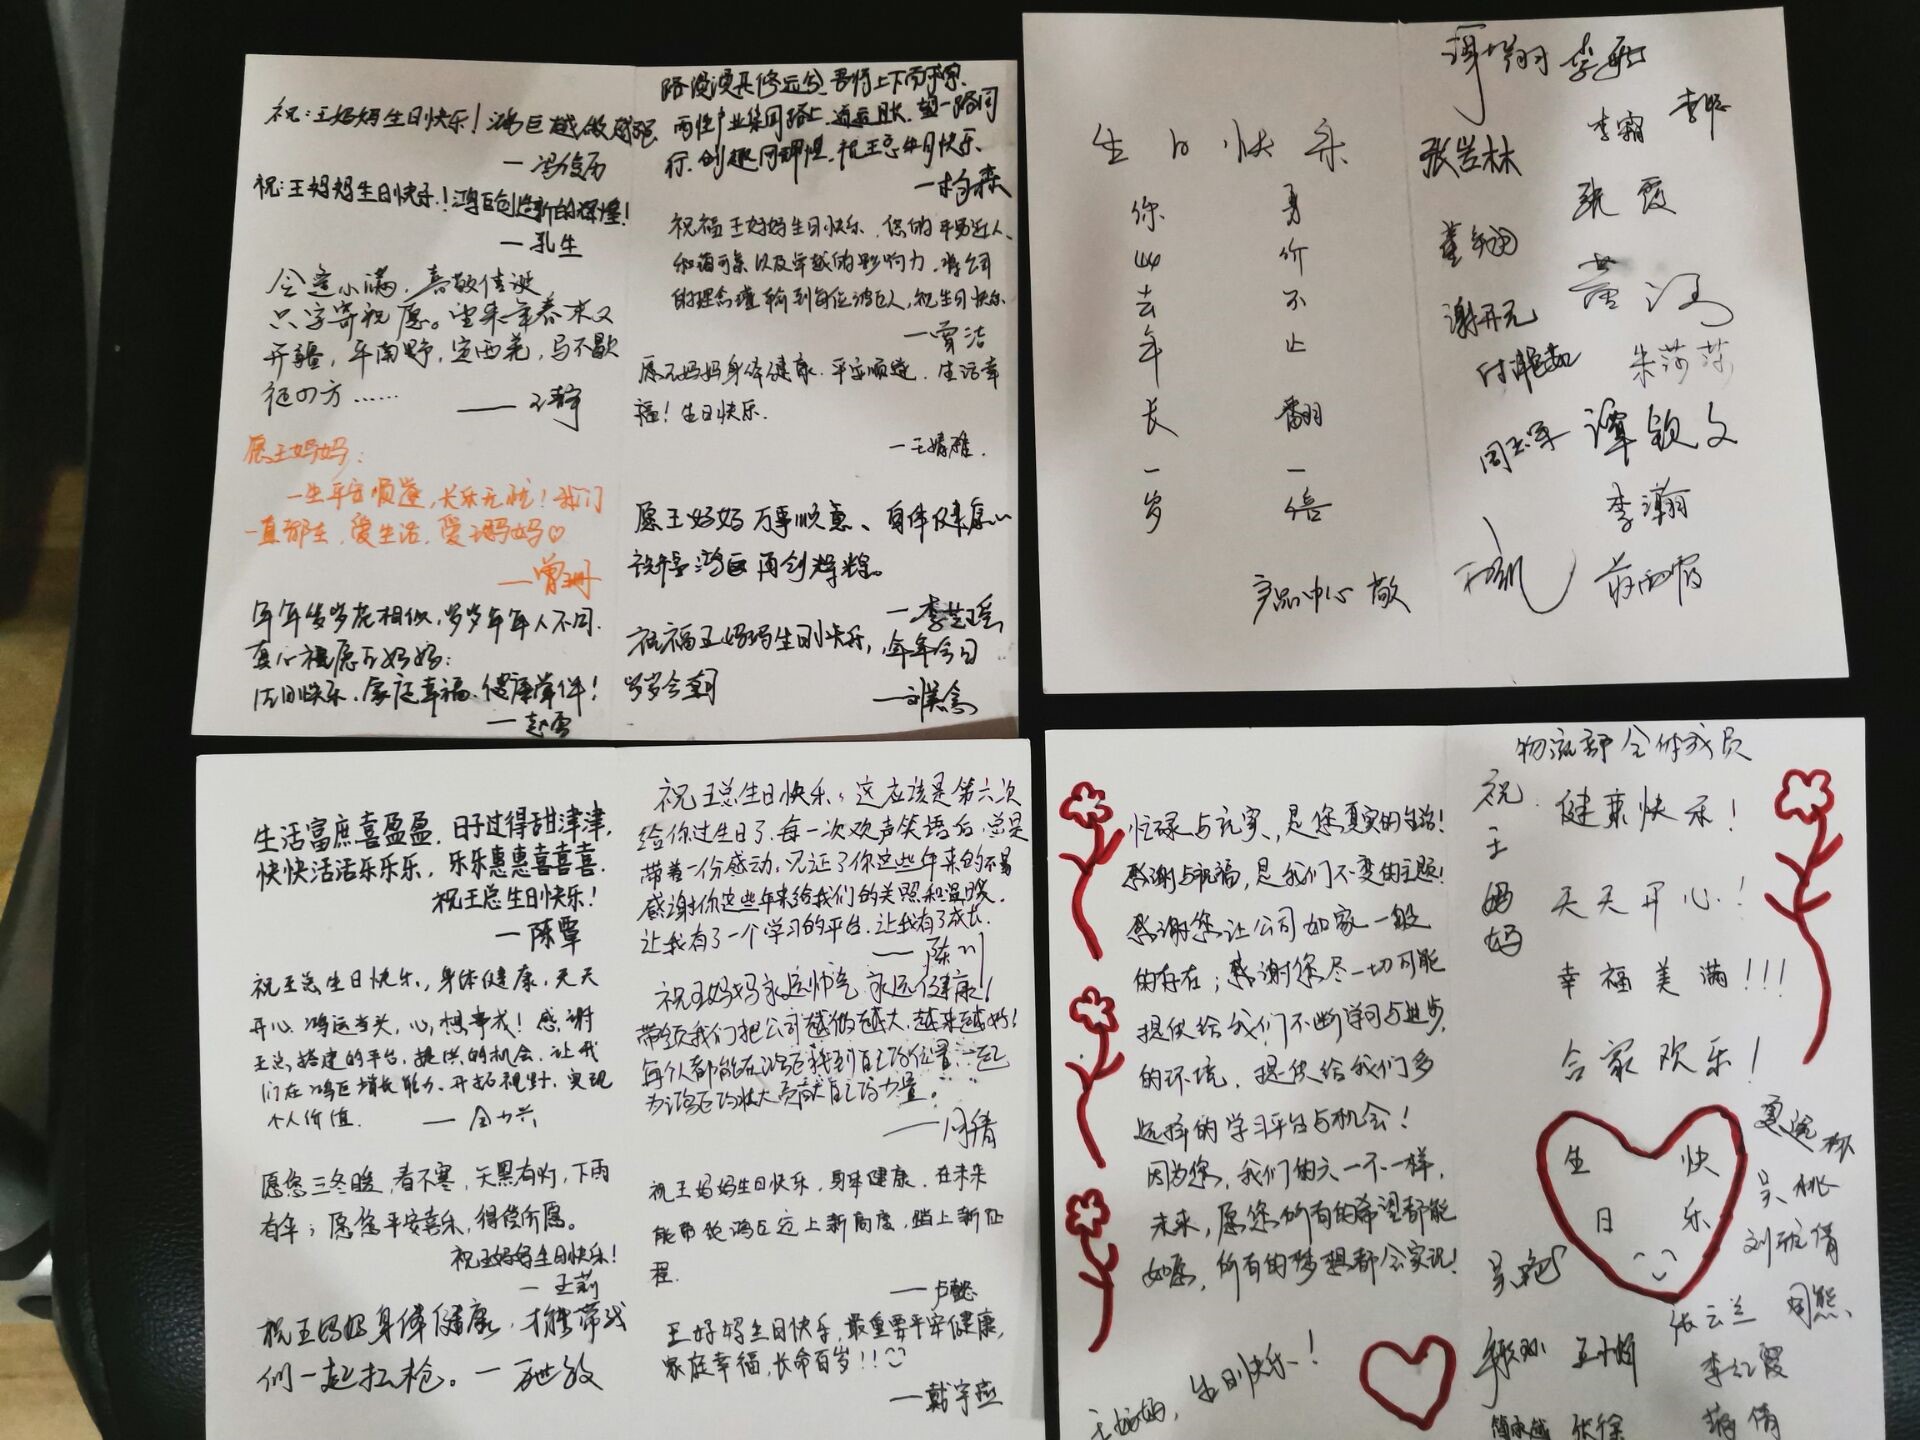 祝：王妈妈生日快乐！鸿巨越做越强
祝：王妈妈生日快乐！鸿巨创造新的辉煌！
—孔生
今逢小满，喜敬佳诞
只字寄祝愿。望来年春来又
开疆，平南野，定西羌，马不歇
征四方……
愿王妈妈：
一生平安顺遂，长乐无忧！我们
一直都在，爱生活，爱王妈妈♡
—曾珊
年年岁岁花相似，岁岁年年人不同.
真心祝愿王妈妈：
生日快乐、家庭幸福、健康常伴！
—赵雪
路漫漫其修远兮，吾将上下而求索.
两性产业集团路上，道阻且长，望一路同
行、创趣同理想，祝王总生日快乐、
—杨森
祝福王妈妈生日快乐、您的平易近人、
和蔼可亲以及卓越的影响力，将公司
的理念灌输到每位鸿巨人，祝生日快乐
—曾洁
愿王妈妈身体健康，平安顺遂，生活幸
福！生日快乐.
—王婧雅.
愿王妈妈万事顺意、身体健康心
鸿巨再创辉煌。
—李芝瑶
祝福王妈妈生日快乐，年年今日
岁岁今朝
生日快乐
你出去年长一岁
身价不止翻一倍
产品中心 敬
李霜
张岩林
张霞
谢开元
朱莎莎
谭钦文
李瀚
生活富庶喜盈盈，日子过得甜津津，
快快活活乐乐乐，乐乐惠惠喜喜喜.
祝王总生日快乐！
—陈覃
祝王总生日快乐，身体健康，天天
开心，鸿运当头，心想事成！感谢
王总搭建的平台，提供的机会，让我
们在鸿巨增长能力、开拓视野，实现
个人价值.
愿您三冬暖，春不寒，天黑有灯，下雨
有伞；愿您平安喜乐，得偿所愿。
祝王妈妈生日快乐！
—王莉
祝王妈妈身体健康，携带我
们一起扛枪。
祝王总生日快乐，这应该是第六次
给你过生日了，每一次欢声笑语后，总是
带着一份感动，见证了你这些年来的不易
感谢你这些年来给我们的关照和温暖.
让我有了一个学习的平台，让我有了成长.
—陈川
祝王妈妈永远帅气 永远健康！
带领我们把公司越做越大，越来越好！
每个人都能在鸿巨找到自己的位置，一起
为鸿巨的壮大贡献自己的力量。
—周倩
祝王妈妈生日快乐，身体健康，在未来
能带领鸿巨迈上新高度，踏上新征
程.
—卢懿
王妈妈生日快乐，最重要平安健康，
家庭幸福，长命百岁！！！
—戴宇燕
忙碌与充实，是您真实的生活！
感谢与祝福，是我们不变的主题！
感谢您让公司如家一般
的存在；感谢您尽一切可能
提供给我们不断学习与进步
的环境，提供给我们多
选择的学习平台与机会！
因为您，我们的六一不一样，
未来，愿您所有的希望都能
如愿，所有的梦想都会实现！
王妈妈，生日快乐！
物流部全体成员
祝王妈妈
健康快乐！
天天开心！
幸福美满！！！
合家欢乐！
生日快乐
吴桃
吴艳
张云兰
周熊
李红霞
蒋倩
张徐